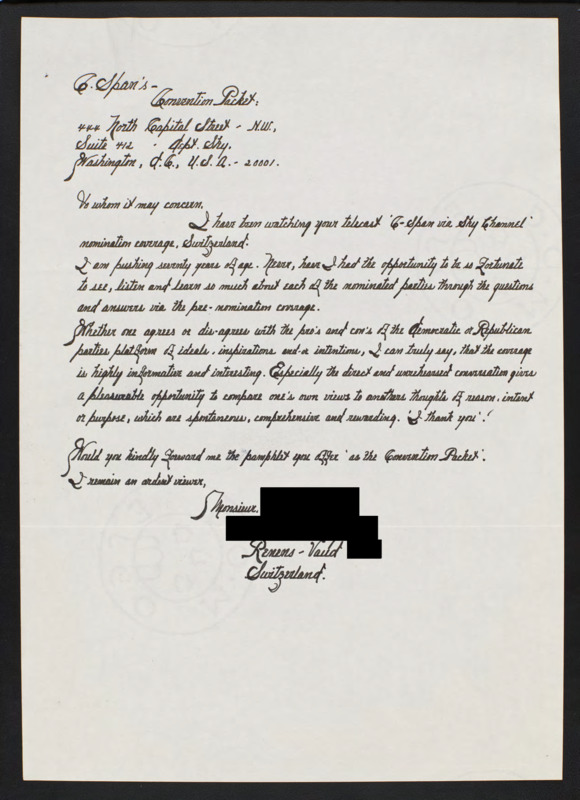 C-Span's -
Convention Packet:
444 North Capital Street - N.W.,
Suite 412 - Dept. Sky.
Washington, D.C., U.S.A. - 20001.
To whom it may concern,
I have been watching your telecast 'C-Span via Sky Channel'
nomination coverage, Switzerland.
I am pushing seventy years of age. Never, have I had the opportunity to be so fortunate
to see, listen and learn so much about each of the nominated parties through the questions
and answers via the pre-nomination coverage.
Whether one agrees or dis-agrees with the pro's and con's of the Democratic or Republican
parties platform of ideals, inspirations and-or intentions, I can truly say, that the coverage
is highly informative and interesting. Especially the direct and unrehearsed conversation gives
a pleasurable opportunity to compare one's own views to anothers thoughts of reason, intent
or purpose, which are spontaneous, comprehensive and rewarding. 'I thank you'!
Would you kindly forward me the pamphlet you offer 'as the Convention Packet'.
I remain an ardent viewer,
Monsieur.
Renens - Vaud
Switzerland.